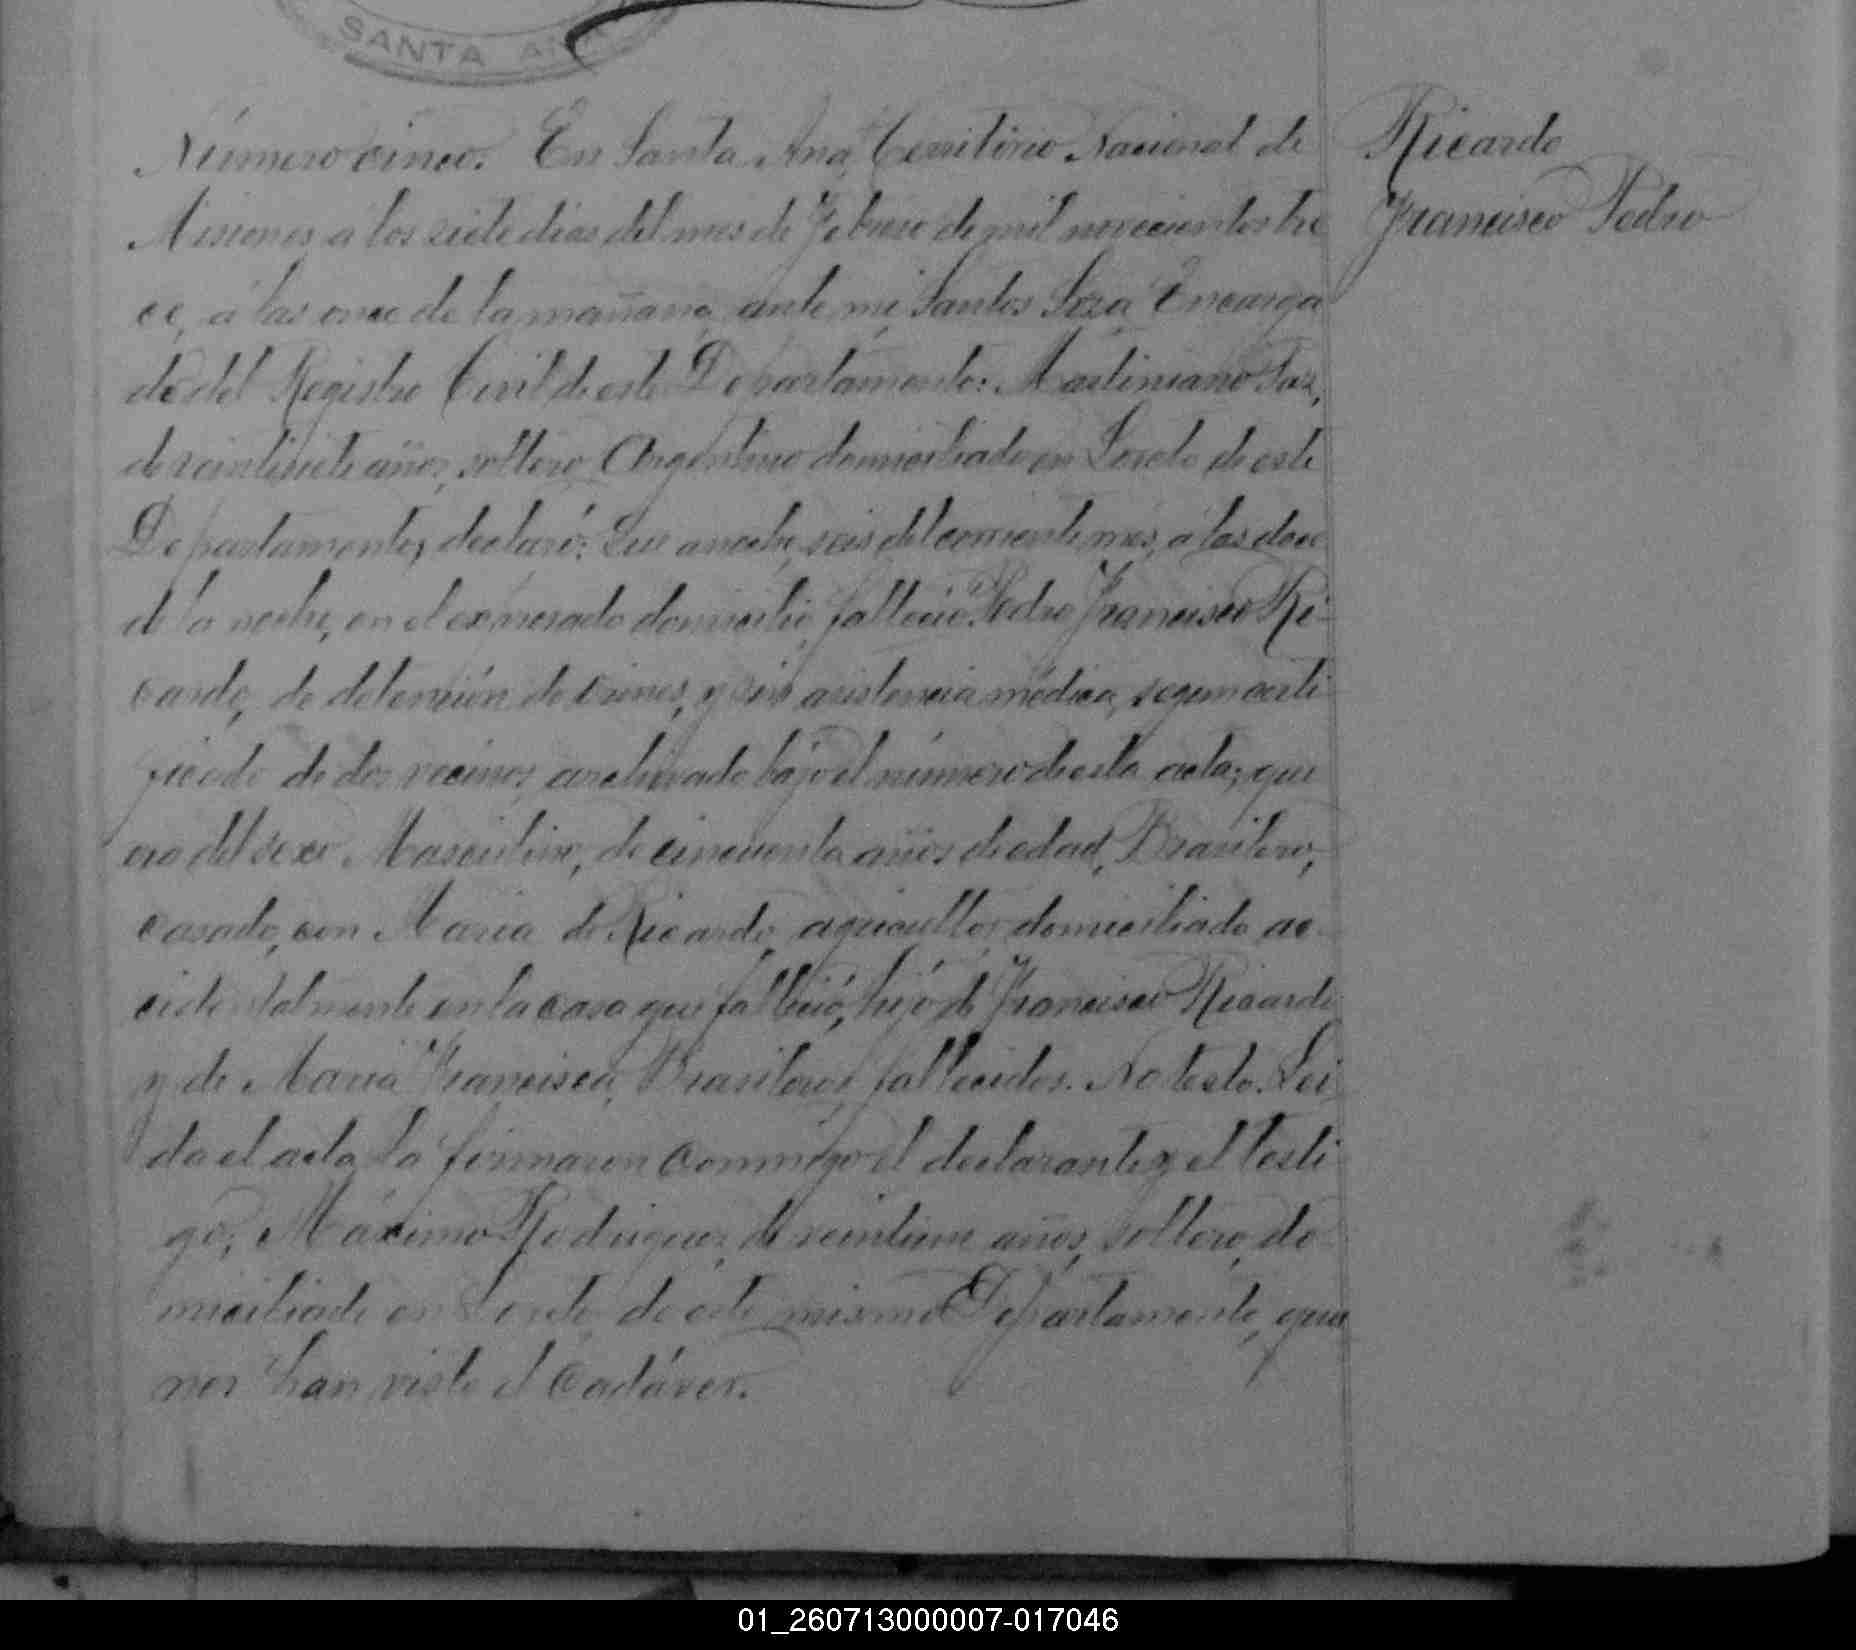 SANTA ANA
Número cinco. En Santa Ana, Territorio Nacional de
Misiones, a los siete dias del mes de Febrero de mil novecientos tre
ce, a las once de la mañana, ante mi, Santos Soza, Encarga
do del Registro Civil de este Departamento: Martiniano
de veintisiete años, soltero, Argentino domiciliado en Loreto de este
Departamento, declaró: Que anoche, seis del corriente mes, a las doce
de la noche, en el expresado domicilio, falleció Pedro Francisco Ri-
cardo, de detención de orines, y sin asistencia médica, segun certi
ficado de dos vecinos, archivado bajo el número de esta acta; que
era del sexo Masculino, de cincuenta años de edad, Brasilero,
casado, con Maria de Ricardo, agricultor, domiciliado ac-
cidentalmente en la casa que falleció, hijo de Francisco Ricardo
y de Maria Francisca, Brasileros, fallecidos. No testo. Lei
da el acta, la firmaron conmigo el declarante y el testi
go, Máximo Rodriguez, de veintiun años, soltero, do
miciliado en Loreto, de este mismo Departamento, que
nes han visto el Cadáver.
Ricardo
Francisco Pedro
01_260713000007-017046